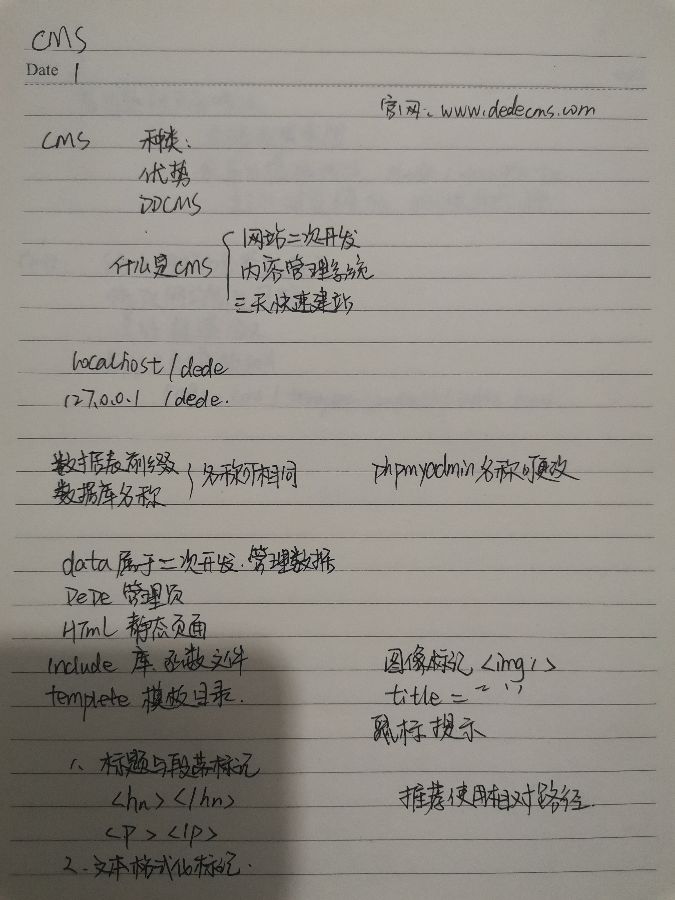 CMS
Date 1
官网: www.dedecms.com
CMS 种类:
优势
DDCMS
什么是CMS
网站二次开发
内容管理系统
三天快速建站
localhost/dede
127.0.0.1 /dede.
数据表前缀
数据库名称
名称可相同
phpmyadmin名称可更改
data 属于二次开发.管理数据
DeDe 管理员
HTmL 静态页面
include 库 函数文件
templete 模板目录.
图像标记 <img/>
title = " "
鼠标提示
1、标题与段落标记
<hn> </hn>
<P> </P>
推荐使用相对路径.
2.文本格式化标记.